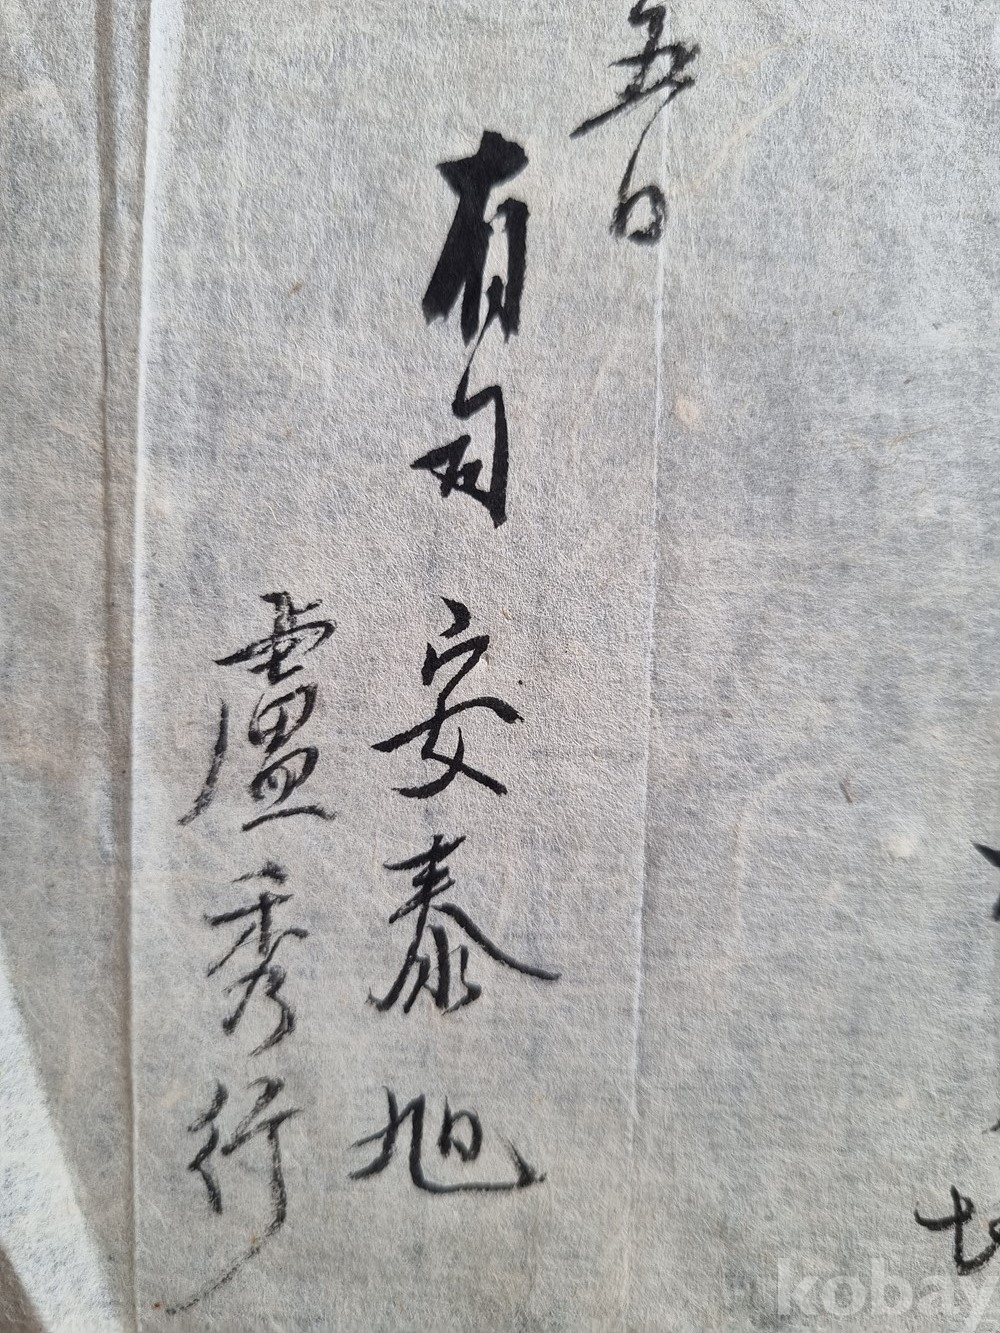 五日
有司 安泰旭
盧秀行
kobay